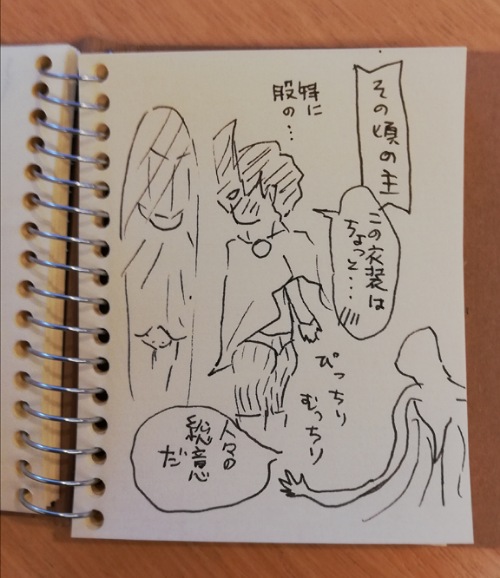 その頃の主
この衣装は
ちょっと…
特に
股の…
ぴっちり
むっちり
人々の
総意
だ